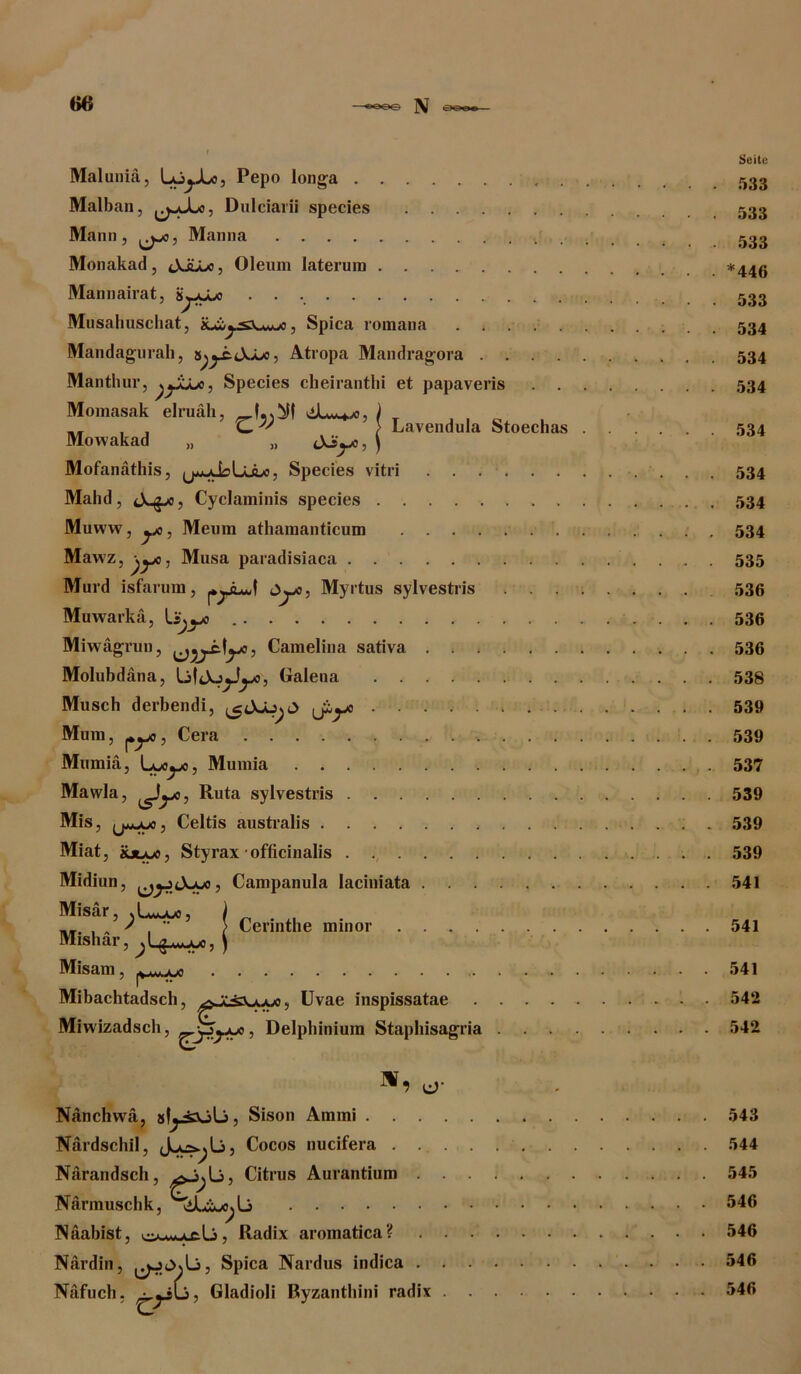 66 N
Seite
Malunia, مالونيا, Pepo longa . . . 533
Malban, مالبن, Dulciarii species . . . 533
Mann, من, Manna . . . 533
Monakad, منقد, Oleum laterum . . . *446
Mannairat, . . . 533
Musahuschat, Spica romana . . . 534
Mandagurah, مندغوره, Atropa Mandragora . . . 534
Manthur, منثور, Species cheiranthi et papaveris . . . 534
Momasak elruâh, ممسك الارواح, } Lavendula Stoechas . . . 534
Mowakad „ „ موقد, }
Mofanâthis, مغناطيس, Species vitri . . . 534
Mahd, مهد, Cyclaminis species . . . 534
Muww, مو, Meum athamanticum . . . 534
Mawz, موز, Musa paradisiaca . . . 535
Murd isfarum, مورد اسفرم, Myrtus sylvestris . . . 536
Muwarkâ, مورقا . . . 536
Miwâgrun, مواغرون, Camelina sativa . . . 536
Molubdâna, مولوبدانا, Galena . . . 538
Musch derbendi, موش دربندى . . . 539
Mum, موم, Cera . . . 539
Mumiâ, موميا, Mumia . . . 537
Mawla, مولى, Ruta sylvestris . . . 539
Mis, ميس, Celtis australis . . . 539
Miat, ميعة, Styrax officinalis . . . 539
Midiun, ميديون, Campanula laciniata . . . 541
Misâr, ميسار, } Cerinthe minor . . . 541
Mishâr, ميسهار, }
Misam, ميسم . . . 541
Mibachtadsch, ميبختج, Uvae inspissatae . . . 542
Miwizadsch, ميويزج, Delphinium Staphisagria . . . 542
N, ن.
Nânchwâ, نانخواه, Sison Ammi . . . 543
Nârdschil, نارجيل, Cocos nucifera . . . 544
Nârandsch, نارنج, Citrus Aurantium . . . 545
Nârmuschk, نارمشك . . . 546
Nâabist, ناعبست, Radix aromatica? . . . 546
Nârdin, ناردين, Spica Nardus indica . . . 546
Nâfuch, نافوخ, Gladioli Byzanthini radix . . . 546